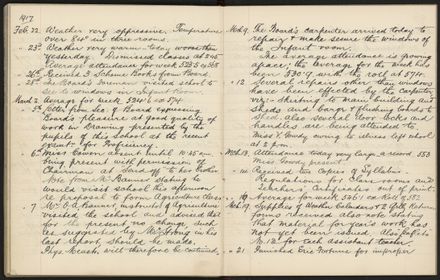 1917
Feb. 22. Weather very oppressive. Temperature
over 80° in three rooms.
" 23rd Weather very warm - today worse than
yesterday. Dismissed classes at 2.45.
Average attendance for week 523.5
" 26th Received 2 Scheme Books from Board.
" 28th The Board's Foreman visited school &
see to windows in Infant Room.
March 2. Average for week 524.1 on 574.
" 5th Letter from Sec. of Board expressing
Board's pleasure at good quality of
work in Drawing presented by the
pupils of this school at the recent
exams for Proficiency.
" 6th Miss Cowan absent until 10.45 am
being present with permission of
Chairman at send off to her brother
Note from Mr. Bannister stating he
would visit school this afternoon
re proposal to form Agriculture class.
" 7 Mr. Bannister, instructor of Agriculture
visited the school and advised that
for the present no change, such
as suggested by Mr. Strong in his
last report, should be made.
Phys. & Heat will therefore be continued.
Mch 9. The Board's carpenter arrived today to
repair & make secure the windows of
the Infant room.
The average attendance is growing
apace; the average for the week has
been 530.9 with the roll at 577.
" 12. Several repairs other than windows
have been effected by the carpenter,
viz - attending to drain, building coal
Shed, and bicycle & finding tables to
Shed, also several door locks and
handles are being attended to.
Miss V. Goudy owing to illness left school
at 2 p.m.
Mch 13. Attendance today very large, a record 553
Miss Goudy present.
" 14 Received two copies of Syllabus
Regulations for Classrooms and
Teachers' Certificates out of print.
" 16 Average for week 536.1 on Roll of 582
Mch 19. Supplies of Weather Calendars & 2 Roll Return
forms received also note stating
that material for year's work has
not yet been issued. Also lists
M. 12. for each assistant teacher.
" 21 Punished Eric Fortune for improper